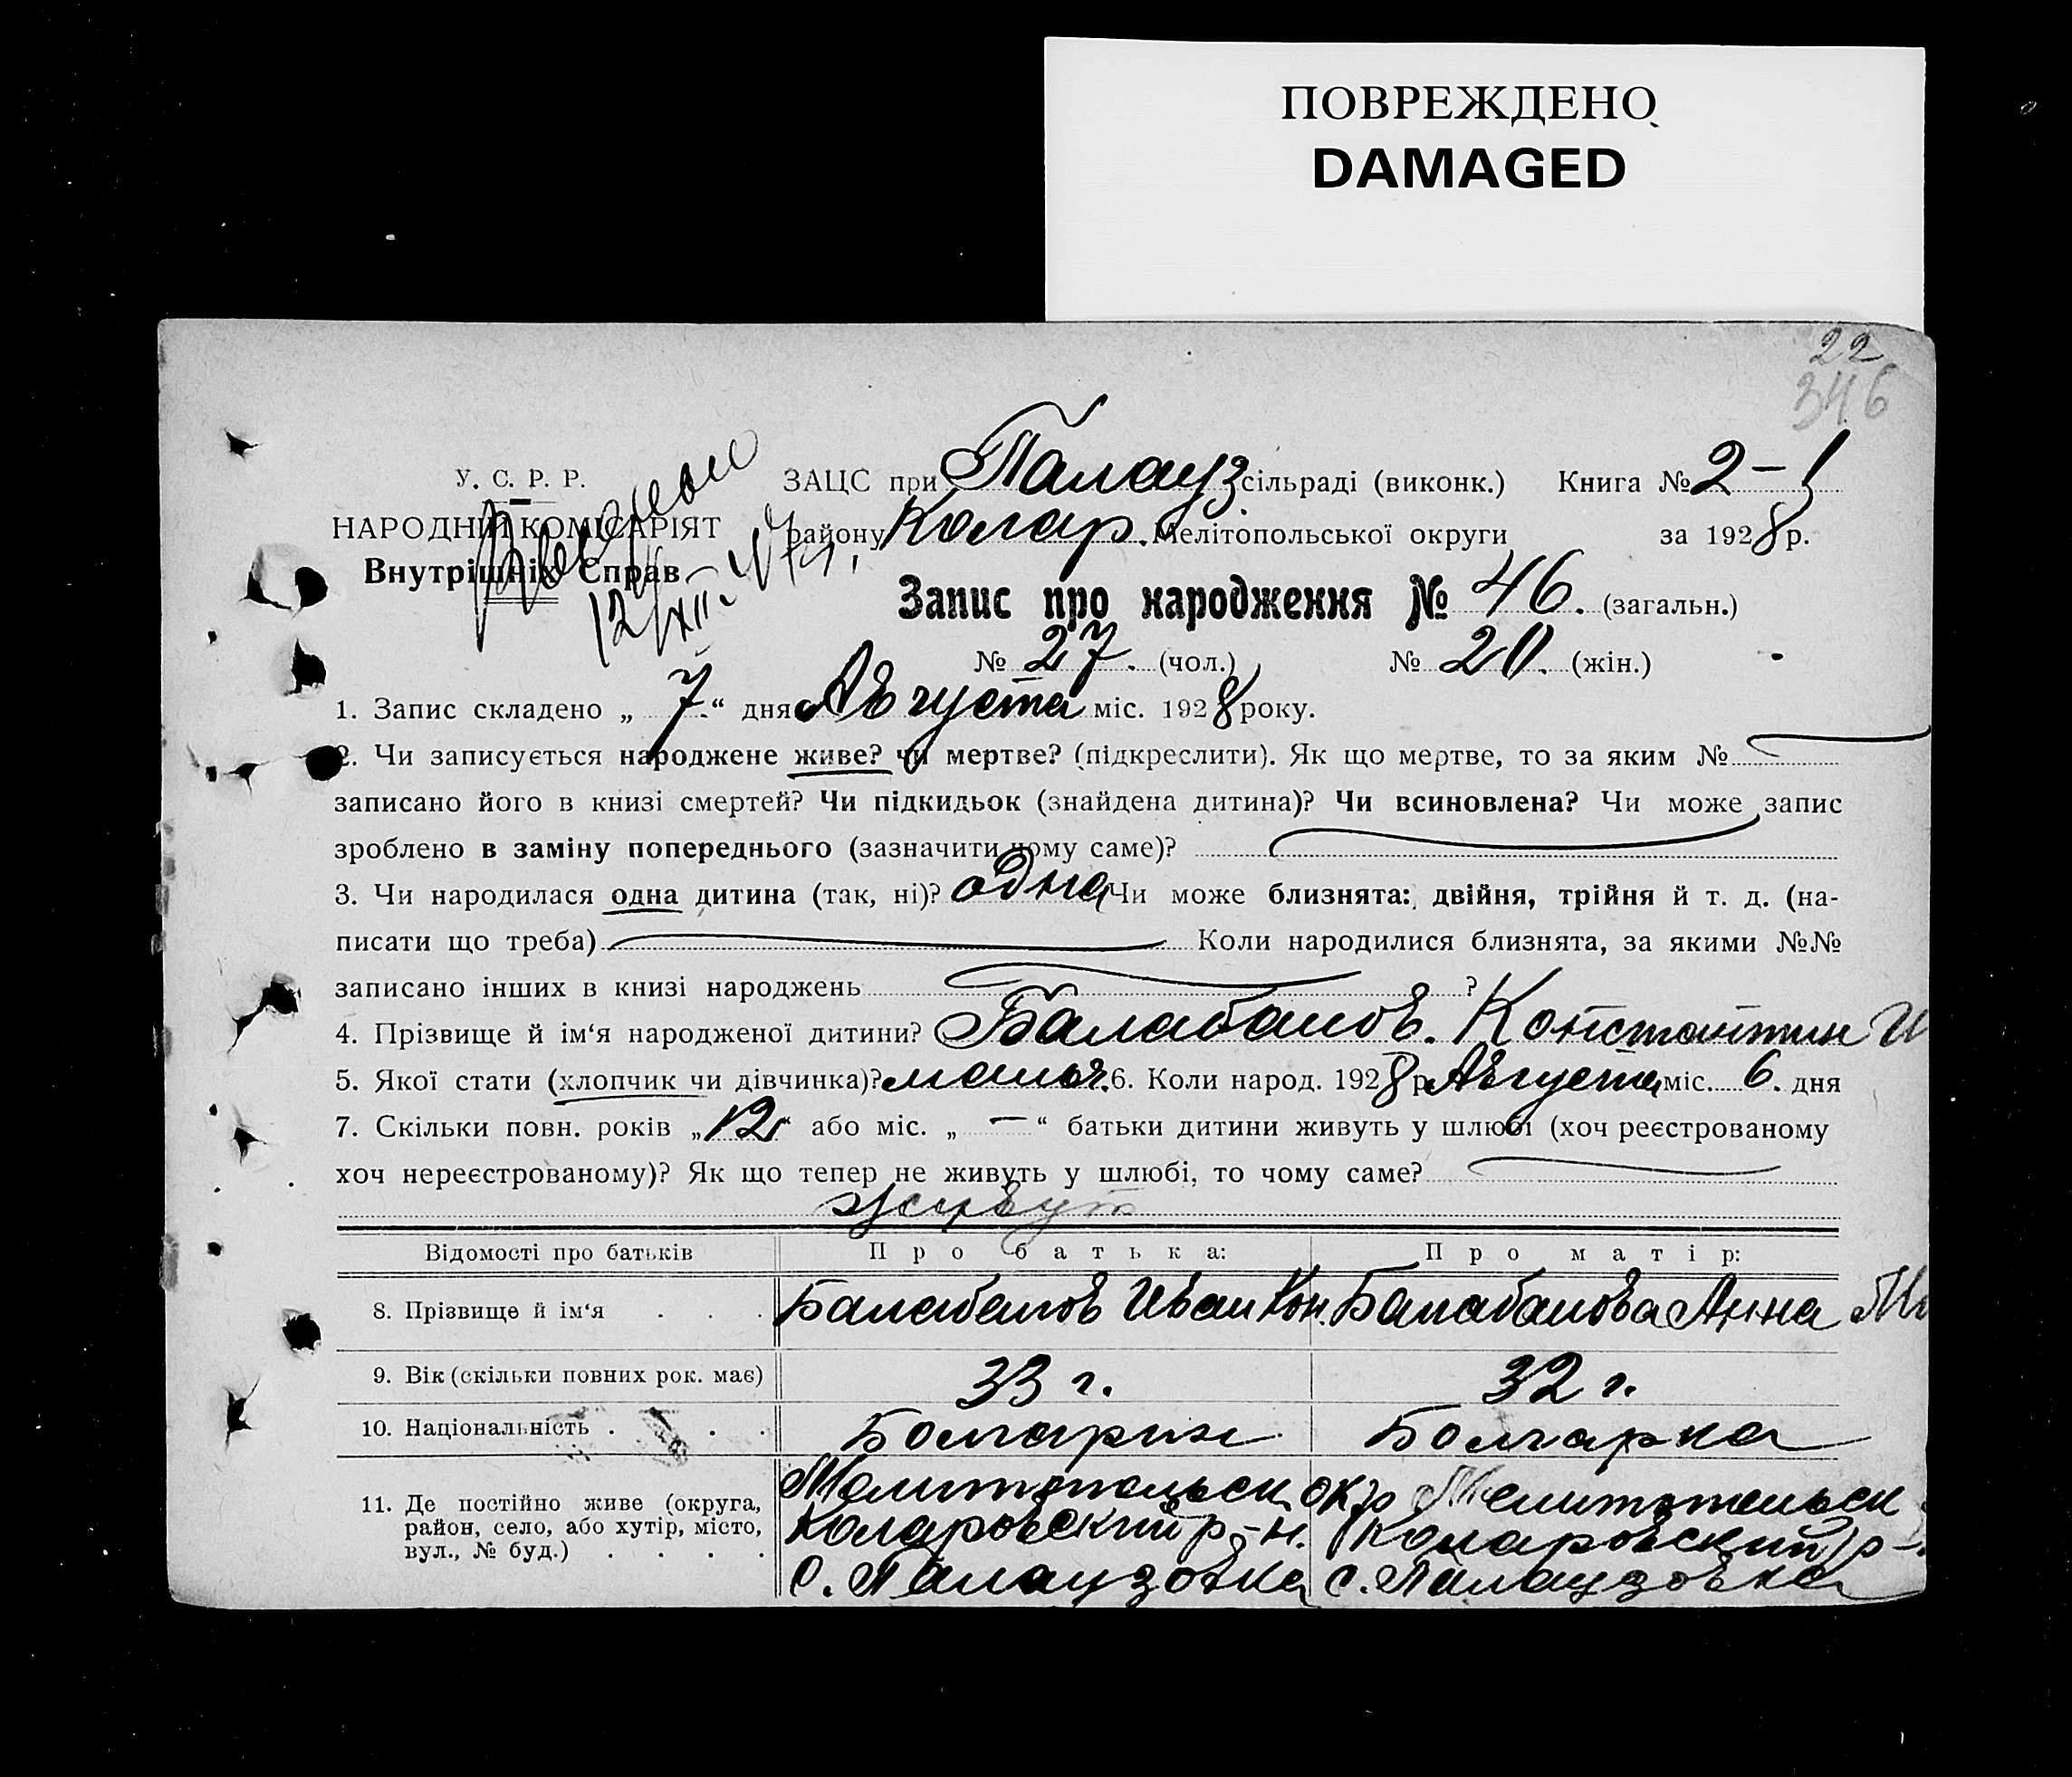 ПОВРЕЖДЕНО
DAMAGED
22
346
У. С. Р. Р.
НАРОДНІЙ КОМІСАРІЯТ
Внутрішніх Справ
12/XII
ЗАЦС при Палауз сільраді (виконк.) Книга № 2-1
району Колар. Мелітопольської округи за 1928 р.
Запис про народження № 46. (загальн.)
№ 27. (чол.) № 20. (жін.)
1. Запис складено „7“ дня Августа міс. 1928 року.
2. Чи записується народжене живе? чи мертве? (підкреслити). Як що мертве, то за яким №
записано його в книзі смертей? Чи підкидьок (знайдена дитина)? Чи всиновлена? Чи може запис
зроблено в заміну попереднього (зазначити чому саме)?
3. Чи народилася одна дитина (так, ні)? одна Чи може близнята: двійня, трійня й т. д. (на-
писати що треба) Коли народилися близнята, за якими №№
записано інших в книзі народжень ?
4. Прізвище й ім‘я народженої дитини? Балабанов. Константин И
5. Якої стати (хлопчик чи дівчинка)? мальч. 6. Коли народ. 1928 р. Августа міс. 6. дня
7. Скільки повн. років „12“ або міс. „—“ батьки дитини живуть у шлюбі (хоч реєстрованому
хоч нереєстрованому)? Як що тепер не живуть у шлюбі, то чому саме?
живут
Відомості про батьків Про батька: Про матір:
8. Прізвище й ім‘я . . . Балабанов Иван Кон. Балабанова Анна
9. Вік (скільки повних рок. має) 33 г. 32 г.
10. Національність . . . Болгарин Болгарка
11. Де постійно живе (округа, район, село, або хутір, місто, вул., № буд.) . . . .
Мелитопольск окр Мелитопольск
Коларовский р-н. Коларовский р-
с. Палаузовка с. Палаузовка